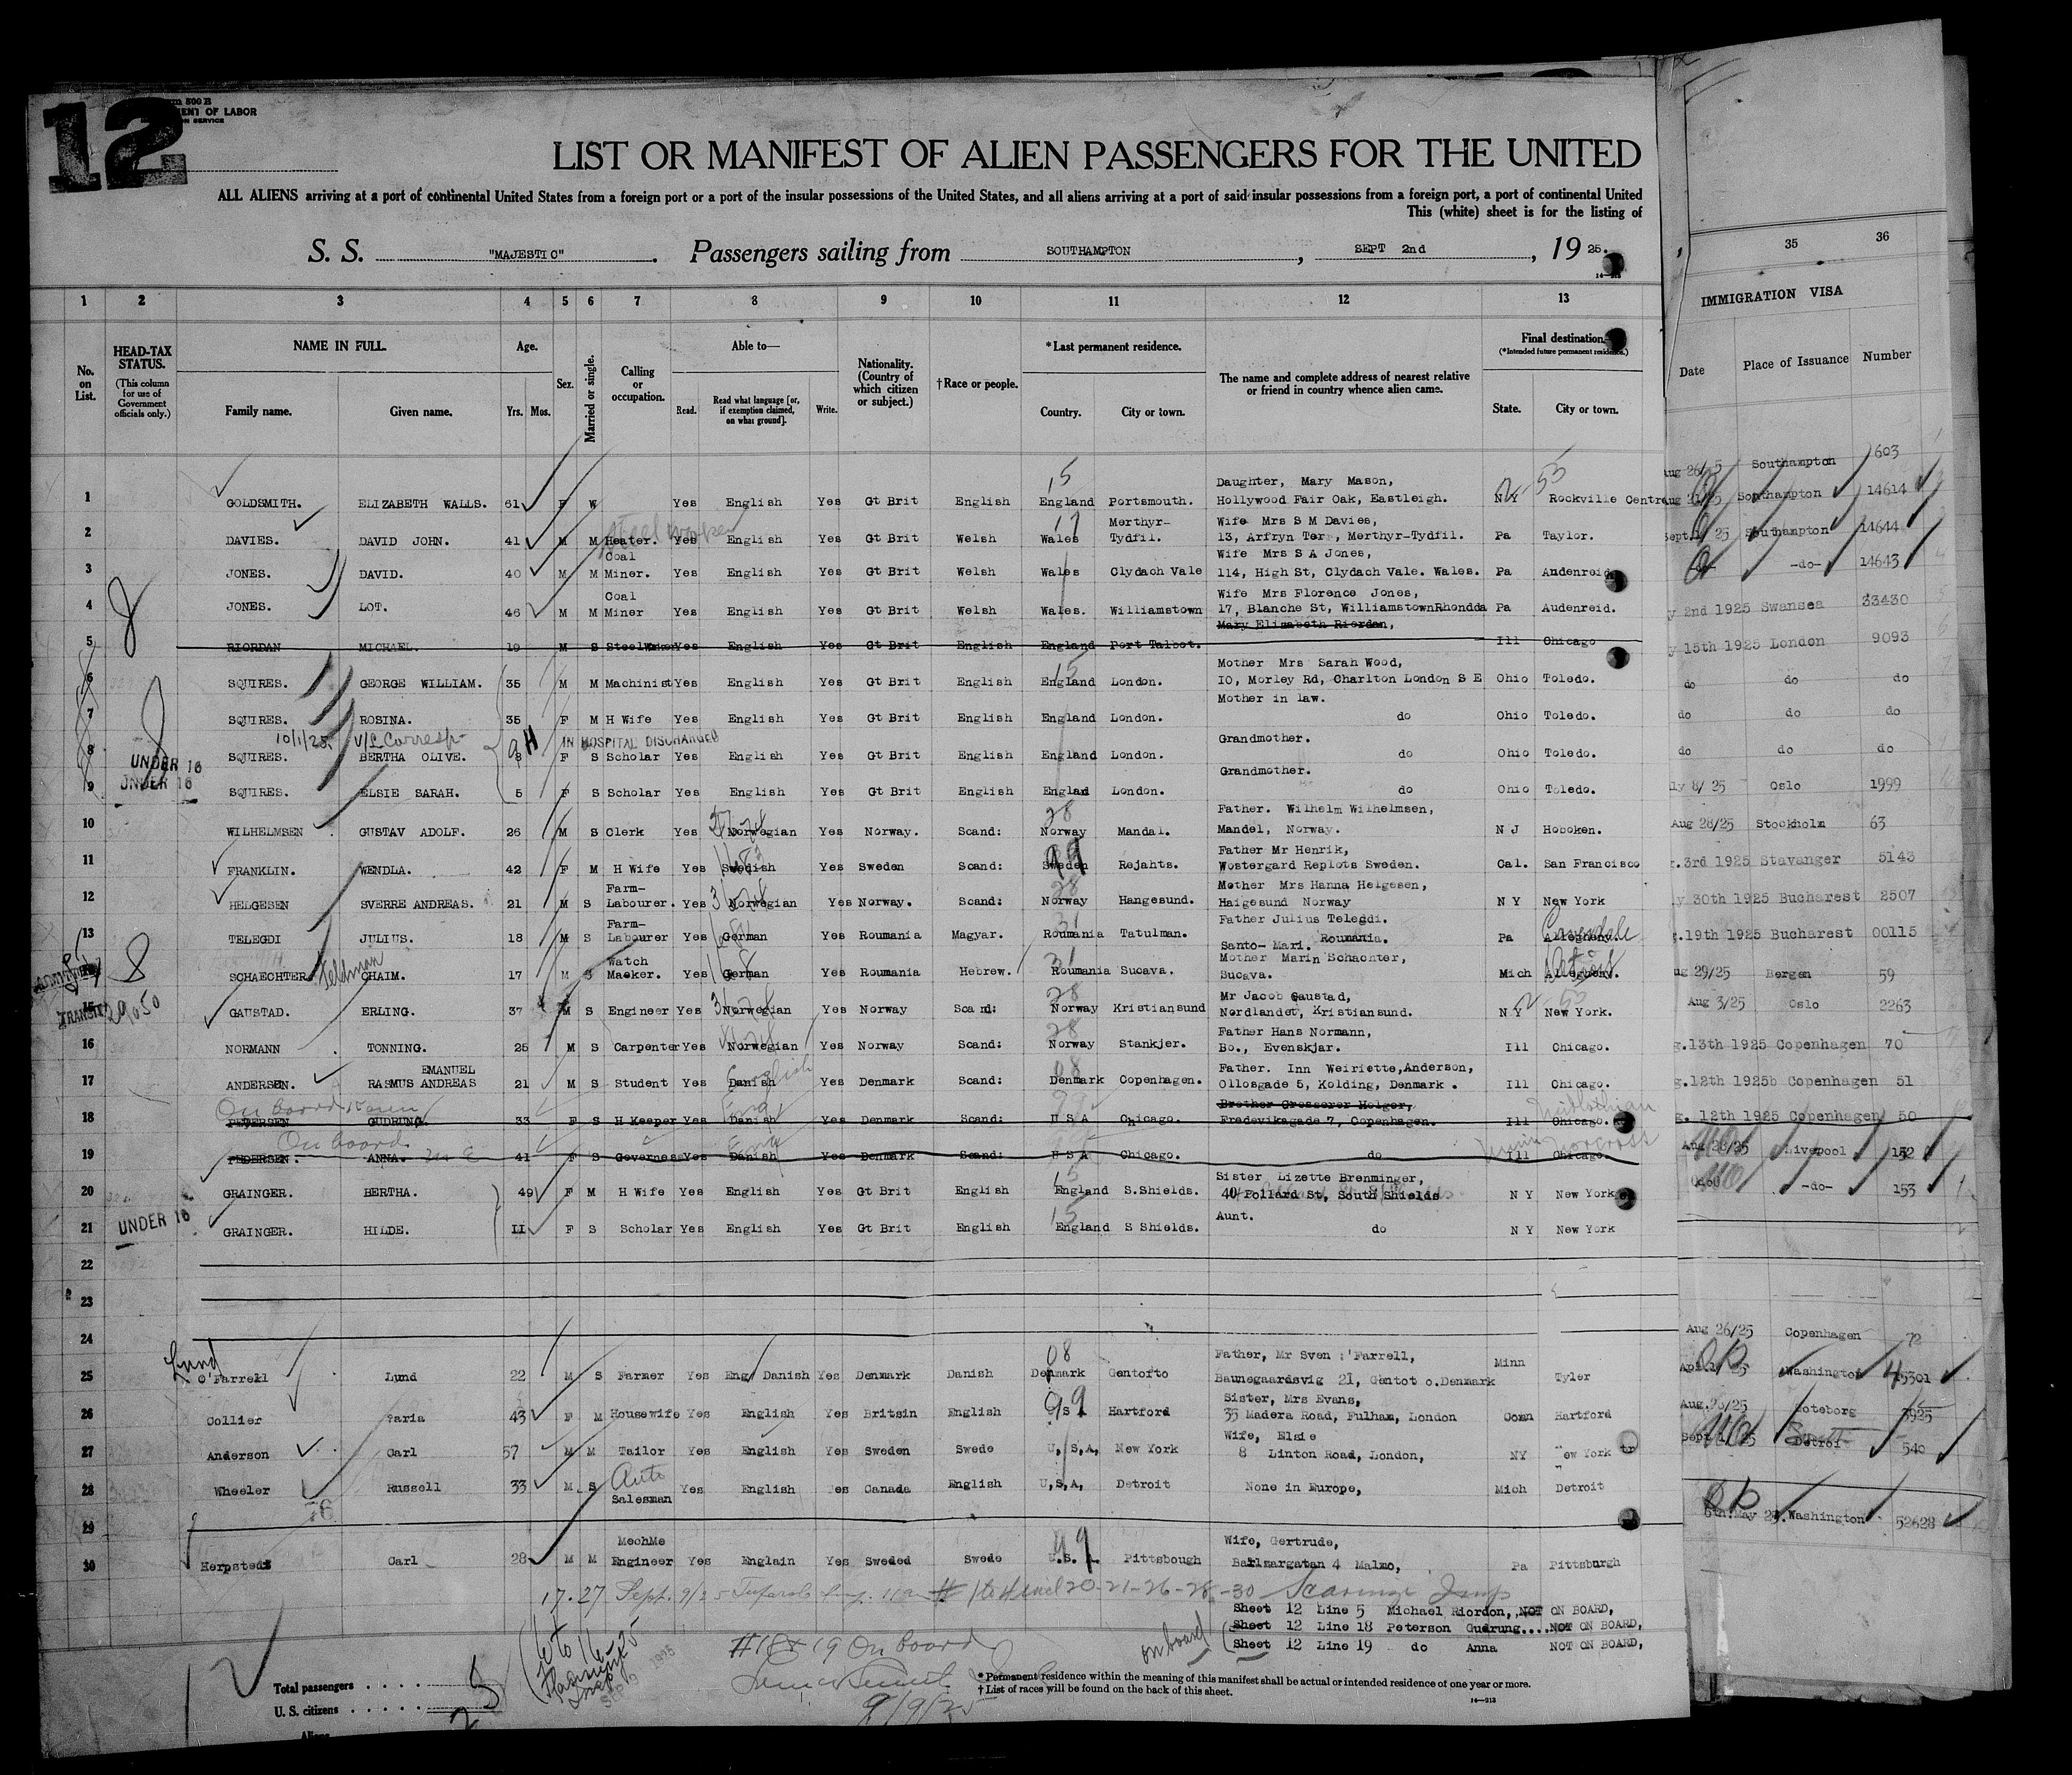 12
Form 500 B
DEPARTMENT OF LABOR
LIST OR MANIFEST OF ALIEN PASSENGERS FOR THE UNITED
ALL ALIENS arriving at a port of continental United States from a foreign port or a port of the insular possessions of the United States, and all aliens arriving at a port of said insular possessions from a foreign port, a port of continental United
This (white) sheet is for the listing of
S. S. "MAJESTIC". Passengers sailing from SOUTHAMPTON, SEPT 2nd, 19 25.
1 2 3 4 5 6 7 8 9 10 11 12 13 35 36
IMMIGRATION VISA
No. on List. HEAD-TAX STATUS. (This column for use of Government officials only.) NAME IN FULL. Family name. Given name. Age. Yrs. Mos. Sex. Married or single. Calling or occupation. Able to— Read. Read what language [or, if exemption claimed, on what ground]. Write. Nationality. (Country of which citizen or subject.) †Race or people. *Last permanent residence. Country. City or town. The name and complete address of nearest relative or friend in country whence alien came. Final destination. (*Intended future permanent residence.) State. City or town. Date Place of Issuance Number
Aug 26/25 Southampton 603
15 Daughter, Mary Mason,
1 GOLDSMITH. ELIZABETH WALLS. 61 F W Yes English Yes Gt Brit English England Portsmouth. Hollywood Fair Oak, Eastleigh. N Y Rockville Centre Aug 21/25 Southampton 14614
Steel Worker 17 Merthyr- Wife Mrs S M Davies,
2 DAVIES. DAVID JOHN. 41 M M Heater. Yes English Yes Gt Brit Welsh Wales Tydfil. 13, Arfryn Ter, Merthyr-Tydfil. Pa Taylor. Sept.1 25 Southampton 14644
Coal Wife Mrs S A Jones,
3 JONES. DAVID. 40 M M Miner. Yes English Yes Gt Brit Welsh Wales Clydach Vale 114, High St, Clydach Vale. Wales. Pa Audenreid -do- 14643
Coal Wife Mrs Florence Jones,
4 JONES. LOT. 46 M M Miner Yes English Yes Gt Brit Welsh Wales. Williamstown 17, Blanche St, WilliamstownRhondda Pa Audenreid. 2nd 1925 Swansea 33430
Mary Elizabeth Riordan,
5 RIORDAN MICHAEL. 19 M S SteelWorker Yes English Yes Gt Brit English England Port Talbot. Ill Chicago 15th 1925 London 9093
15 Mother Mrs Sarah Wood,
6 SQUIRES. GEORGE WILLIAM. 35 M M Machinist Yes English Yes Gt Brit English England London. IO, Morley Rd, Charlton London S E Ohio Toledo. do do do
Mother in law.
7 SQUIRES. ROSINA. 35 F M H Wife Yes English Yes Gt Brit English England London. do Ohio Toledo. do do do
10/1/25. V/L Corresp H IN HOSPITAL DISCHARGED Grandmother.
8 UNDER 16 SQUIRES. BERTHA OLIVE. 8 F S Scholar Yes English Yes Gt Brit English England London. do Ohio Toledo. do do do
Grandmother.
9 UNDER 16 SQUIRES. ELSIE SARAH. 5 F S Scholar Yes English Yes Gt Brit English Englad London. do Ohio Toledo. 8/ 25 Oslo 1999
28 Father. Wilhelm Wilhelmsen,
10 WILHELMSEN GUSTAV ADOLF. 26 M S Clerk Yes Norwegian Yes Norway. Scand: Norway Mandal. Mandel, Norway. N J Hoboken. Aug 28/25 Stockholm 63
Father Mr Henrik,
11 FRANKLIN. WENDLA. 42 F M H Wife Yes Swedish Yes Sweden Scand: Sweden Rejahts. Wostergard Replots Sweden. Cal. San Francisco 3rd 1925 Stavanger 5143
Farm- 28 Mother Mrs Hanna Helgesen,
12 HELGESEN SVERRE ANDREAS. 21 M S Labourer. Yes Norwegian Yes Norway. Scand: Norway Hangesund. Haigesund Norway N Y New York 30th 1925 Bucharest 2507
Farm- 31 Father Julius Telegdi.
13 TELEGDI JULIUS. 18 M S Labourer Yes German Yes Roumania Magyar. Roumania Tatulman. Santo- Mari. Roumania. Pa Allegheny. 19th 1925 Bucharest 00115
Feldman Watch 31 Mother Marin Schachter,
SCHAECHTER CHAIM. 17 M S Maeker. Yes German Yes Roumania Hebrew. Roumania Sucava. Sucava. Mich Allegheny. Detroit Aug 29/25 Bergen 59
29050 28 Mr Jacob Gaustad,
15 TRANSIT GAUSTAD. ERLING. 37 M S Engineer Yes Norwegian Yes Norway Scand: Norway Kristiansund Nordlandet, Kristiansund. N Y New York. Aug 3/25 Oslo 2263
28 Father Hans Normann,
16 NORMANN TONNING. 25 M S Carpenter Yes Norwegian Yes Norway Scand: Norway Stankjer. Bo., Evenskjar. Ill Chicago. 13th 1925 Copenhagen 70
EMANUEL English 08 Father. Inn Weiriette,Anderson,
17 ANDERSEN. RASMUS ANDREAS 21 M S Student Yes Danish Yes Denmark Scand: Denmark Copenhagen. Ollosgade 5, Kolding, Denmark . Ill Chicago. 12th 1925 Copenhagen 51
On board Karen Eng 99 Brother Grosserer Holger, Midlothian
18 PETERSEN GUDRUNG. 33 F S H Keeper Yes Danish Yes Denmark Scand: U S A Chicago. Fredevikagade 7, Copenhagen. Ill Chicago. 12th 1925 Copenhagen 50
On board Eng
19 PEDERSEN . ANNA. 41 F S Governess Yes Danish Yes Denmark Scand: U S A Chicago. do Ill Chicago. Aug 28/25 Liverpool 152
15 Sister Lizette Brenminger,
20 GRAINGER. BERTHA. 49 F M H Wife Yes English Yes Gt Brit English England S.Shields. 40 Pollard St, South Shields N Y New York -do- 153
15 Aunt.
21 UNDER 16 GRAINGER. HILDE. II F S Scholar Yes English Yes Gt Brit English England S Shields. do N Y New York
22
23
24 Aug 26/25 Copenhagen 72
Lund 08 Father, Mr Sven O'Farrell,
25 O'Farrell Lund 22 M S Farmer Yes Eng/ Danish Yes Denmark Danish Denmark Gentofto Baunegaardsvig 21, Gentot o.Denmark Minn Tyler Apr.1 25 Washington 45301
99 Sister, Mrs Evans,
26 Collier Maria 43 F M Housewife Yes English Yes Britsin English Hartford 35 Madera Road, Fulham, London Conn Hartford Aug.26/25 Goteborg 3925
Wife, Elsie
27 Anderson Carl 57 M M Tailor Yes English Yes Sweden Swede U, S,A, New York 8 Linton Road, London, NY New York Sept 1 25 Detroi 540
Auto
28 Wheeler Russell 33 M S Salesman Yes English Yes Canada English U,S,A, Detroit None in Europe, Mich Detroit
76
29 6th.May 25.Washington 52628
MechMe 99 Wife, Gertrude,
30 Herpstedt Carl 28 M M Engineer Yes Englain Yes Sweded Swede U.S. Pittsbough Barlmargatan 4 Malmo, Pa Pittsburgh
17-27 Sept. 9/25 # 1 to 4 incl 20-21-26-28-30
Sheet 12 Line 5 Michael Riordon, NOT ON BOARD,
Sheet 12 Line 18 Peterson Gudrung....NOT ON BOARD,
on board Sheet 12 Line 19 do Anna NOT ON BOARD,
#18 & 19 On board
9/9/25
* Permanent residence within the meaning of this manifest shall be actual or intended residence of one year or more.
† List of races will be found on the back of this sheet.
14—213
Total passengers
U. S. citizens
Aliens